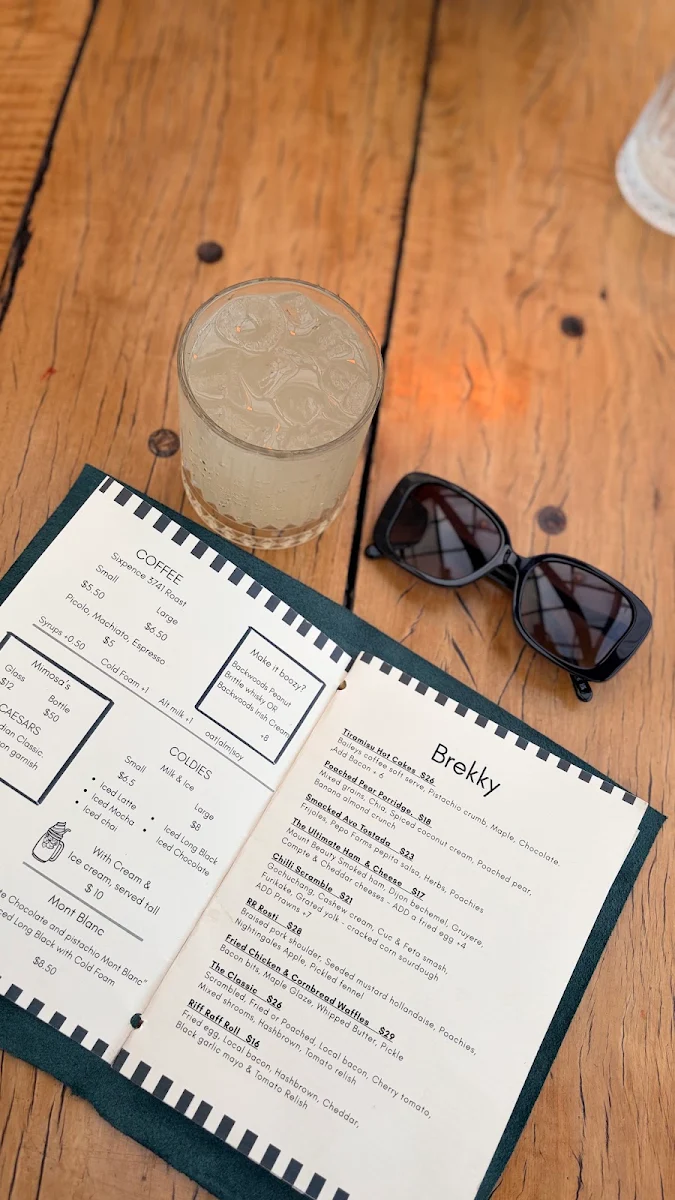 COFFEE
Sixpence 3741 Roast
Small
Large
$5.50
$6.50
Picolo, Machiato, Espresso
$5
Syrups +0.50
Cold Foam +1
Alt milk +1
oat|alm|soy
Make it boozy?
Backwoods Peanut
Brittle whisky OR
Backwoods Irish Cream
+8
Mimosa's
Glass
Bottle
$12
$50
CAESARS
Classic.
garnish
COLDIES
Milk & Ice
Small
Large
$6.5
$8
• Iced Latte
• Iced Mocha
• Iced chai
• Iced Long Black
• Iced Chocolate
With Cream &
Ice cream, served tall
$10
Mont Blanc
Chocolate and pistachio Mont Blanc"
Long Black with Cold Foam
$8.50
Brekky
Tiramisu Hot Cakes $26
Baileys coffee soft serve, Pistachio crumb, Maple, Chocolate.
Add Bacon + 6
Poached Pear Porridge. $18
Mixed grains, Chia, Spiced coconut cream, Poached pear,
Banana almond crunch
Smacked Avo Tostada $23
Frijoles, Pepo Farms pepita salsa, Herbs, Poachies
The Ultimate Ham & Cheese $17
Mount Beauty Smoked ham, Dijon bechemel, Gruyere,
Compte & Cheddar cheeses - ADD a fried egg +4
Chilli Scramble $21
Gochuchang, Cashew cream, Cuc & Feta smash,
Furikake, Grated yolk - cracked corn sourdough
ADD Prawns +7
RR Rosti $28
Braised pork shoulder, Seeded mustard hollandaise, Poachies,
Nightingales Apple, Pickled fennel
Fried Chicken & Cornbread Waffles $29
Bacon bits, Maple Glaze, Whipped Butter, Pickle
The Classic $26
Scrambled, Fried or Poached, Local bacon, Cherry tomato,
Mixed shrooms, Hashbrown, Tomato relish
Riff Raff Roll $16
Fried egg, Local bacon, Hashbrown, Cheddar,
Black garlic mayo & Tomato Relish